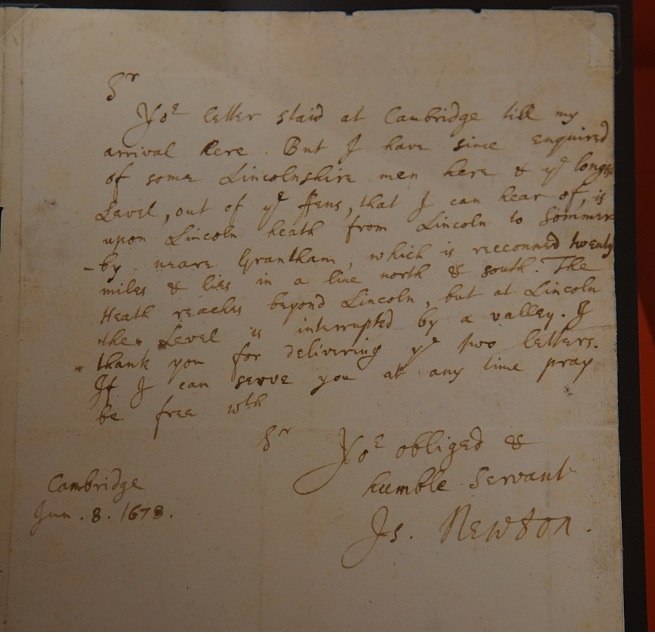 Sr
Yor letter staid at Cambridge till my
arrival here. But I have since enquired
of some Lincolnshire men here & ye longest
Level, out of ye ffens, that I can hear of, is
upon Lincoln heath from Lincoln to Sommer
-by neare Grantham, which is reconned twenty
miles & lies in a line north & south. The
Heath reaches beyond Lincoln, but at Lincoln
the Level is interrupted by a valley. I
thank you for delivering ye two letters.
If I can serve you at any time pray
be free wth
Sr
Yor obliged &
humble Servant
Is. Newton.
Cambridge
Jun. 8. 1678.